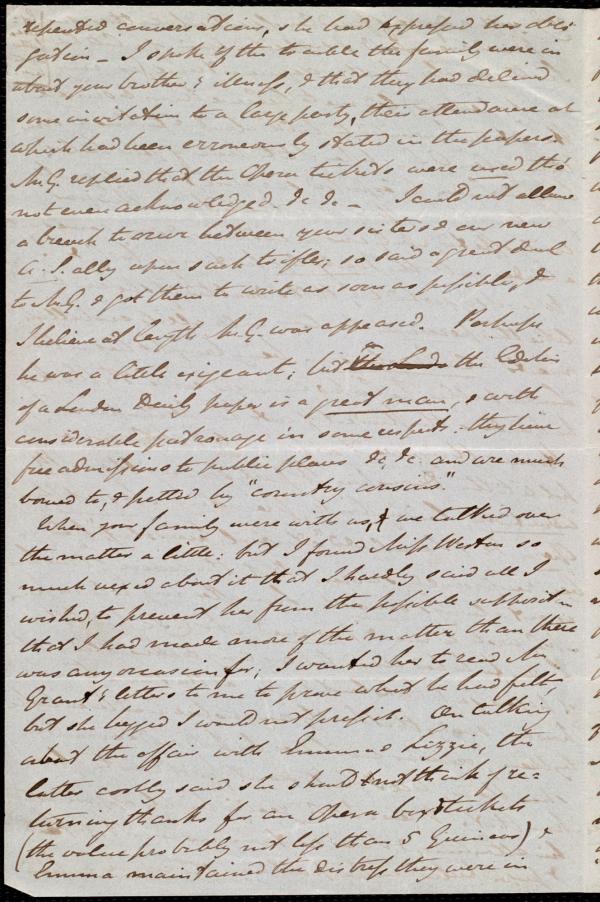 repeated conversations, she had expressed her obli-
gation - I spoke of the trouble the family were in
about your brother's illness, & that they had declined
some invitation to a large party, their attendance at
which had been erroneously stated in the papers.
Mr. G. replied that the Opera tickets were used tho'
not even acknowledged &c &c - I could not allow
a breach to occur between your sisters & our new
A. S. ally upon such trifles; so said a great deal
to Mr. G. & got them to write as soon as possible, &
I believe at length Mr. G. was appeased. Perhaps
he was a little exigeant; but the Editor
of a London Daily paper is a great man, & with
considerable patronage in some respects. they have
free admissions to public places &c, &c. and are much
bowed to, & petted by "country cousins".
When your family were with us, we talked over
the matter a little: but I found Miss Weston so
much vexed about it that I hardly said all I
wished, to prevent her from the possible supposit'n
that I had made more of the matter than there
was any occasion for; I wanted her to read Mr
Grant's letters to me to prove what he had felt,
but she begged I would not press it. On talking
about the affair with Emma & Lizzie, the
latter coolly said she should not think of re=
turning thanks for an Opera box tickets
(the value probably not less than 5 Guineas) &
Emma maintained the distress they were in